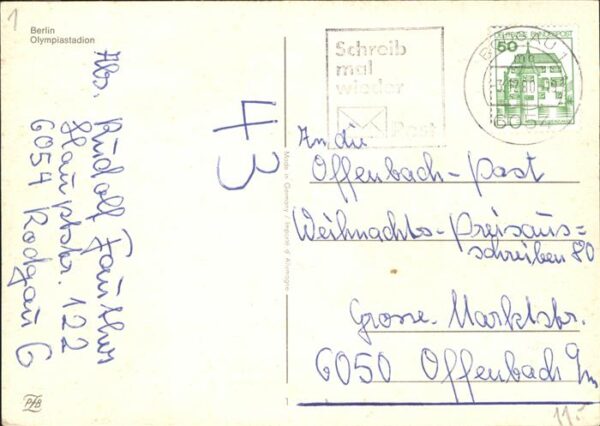 1
Berlin
Olympiastadion
Abs. Rudolf
Hauptstr. 122
6054 Rodgau 6
43
Made in Germany / Imprimé d'Allemagne
PJB
Schreib
mal
wieder
Post
DEUTSCHE BUNDESPOST
50
RODGAU 1
6054
An die
Offenbach-Post
Weihnachts-Preisaus=
schreiben 80
Grosse Marktstr.
6050 Offenbach
11.-